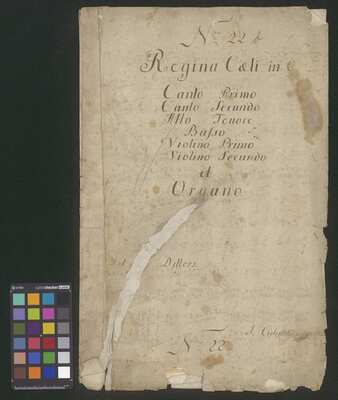 No 22
Regina Cœli in C
Canto Primo
Canto Secundo
Alto Tenore
Basso
Violino Primo
Violino Secundo
et
Organo
No 22